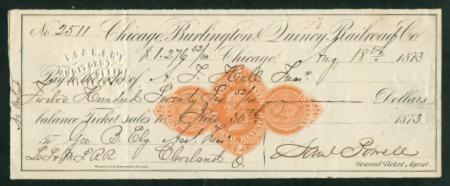 No. 2511 Chicago, Burlington & Quincy Railroad Co.
$1.276 52/100 Chicago, Aug 18th 1873
Pay to the order of A. F. Hall Treas.
Twelve Hundred Seventy Six 52/100 Dollars
balance Ticket sales to June 30th 1873
To Geo B. Ely Asst Treas
Cleveland O. Saml Powell
General Ticket Agent.